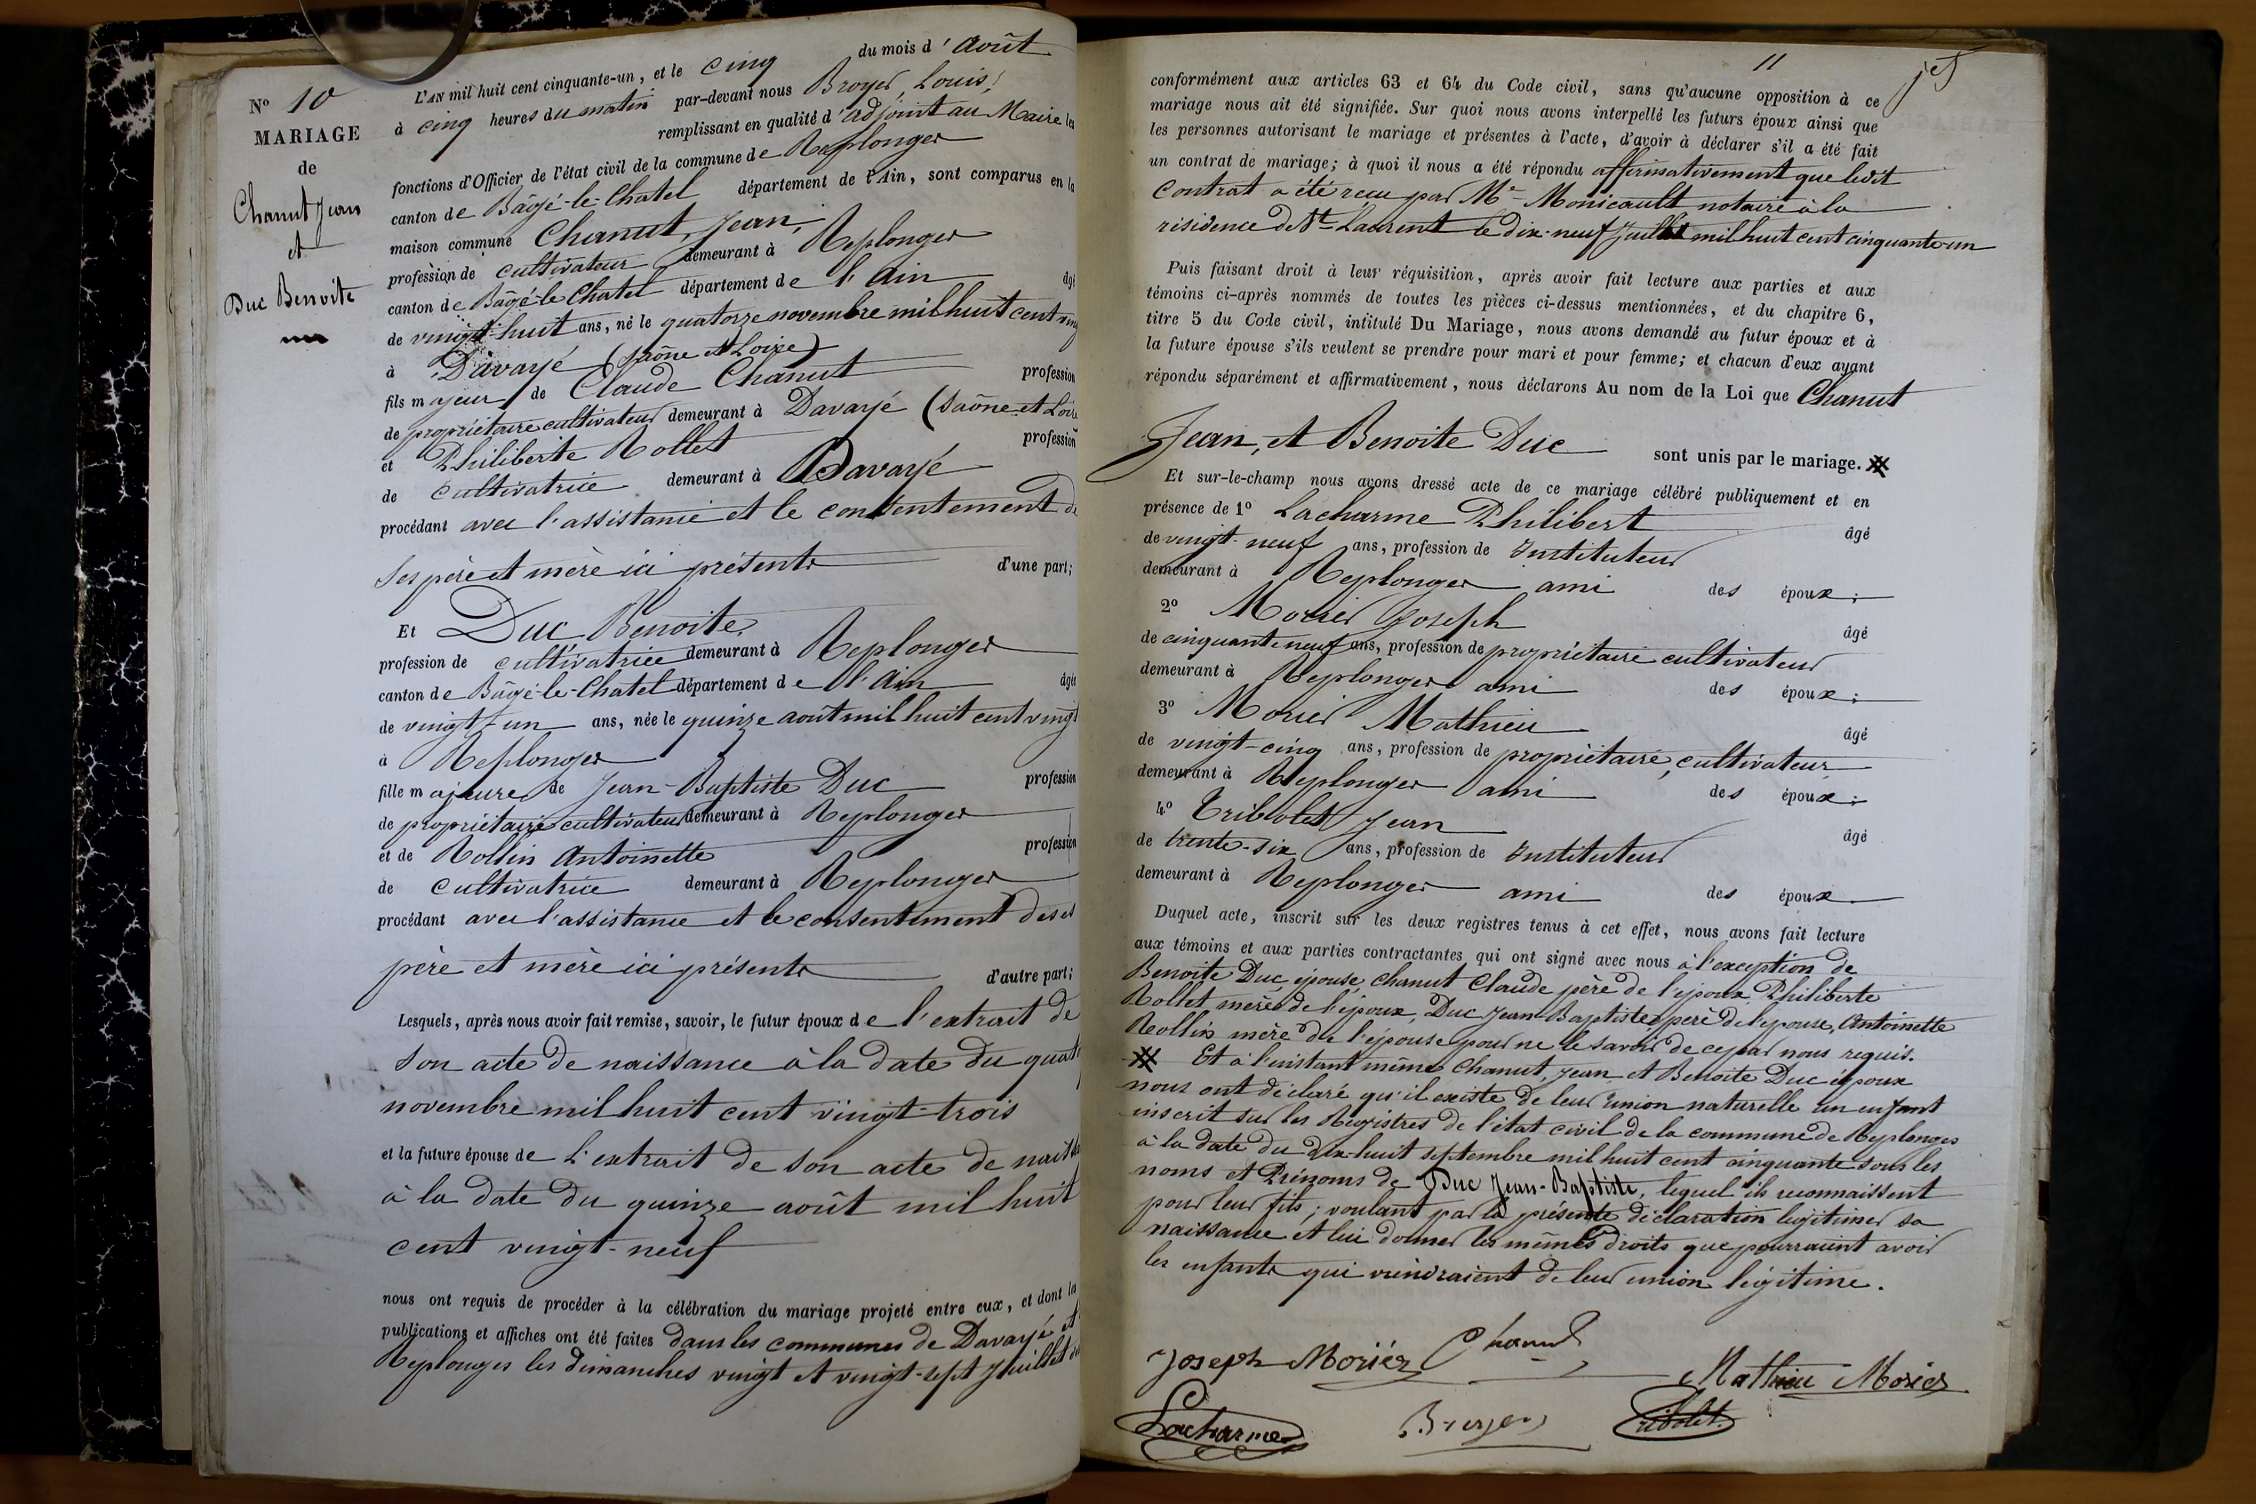 N° 10
MARIAGE
de
Chanut Jean
et
Duc Benoite
L'AN mil huit cent cinquante-un, et le cinq du mois d'août
à cinq heures du matin par-devant nous Broyer, Louis,
remplissant en qualité d'adjoint au Maire les
fonctions d'Officier de l'état civil de la commune de Replonges
canton de Bâgé-le-Chatel département de l'Ain, sont comparus en la
maison commune Chanut, Jean,
profession de cultivateur demeurant à Replonges
canton de Bâgé-le-Chatel département de l'Ain âgé
de vingt-huit ans, né le quatorze novembre mil huit cent
à Davayé (Saône et Loire)
fils majeur de Claude Chanut profession
de propriétaire cultivateur demeurant à Davayé (Saône et Loire
et Philiberte Rollet profession
de cultivatrice demeurant à Davayé
procédant avec l'assistance et le consentement de
ses père et mère ici présents d'une part;
Et Duc Benoite,
profession de cultivatrice demeurant à Replonges
canton de Bâgé-le-Chatel département de l'Ain âgée
de vingt-un ans, née le quinze août mil huit cent vingt
à Replonges
fille majeure de Jean-Baptiste Duc profession
de propriétaire cultivateur demeurant à Replonges
et de Rollin Antoinette profession
de cultivatrice demeurant à Replonges
procédant avec l'assistance et le consentement de ses
père et mère ici présents d'autre part;
Lesquels, après nous avoir fait remise, savoir, le futur époux de l'extrait de
son acte de naissance à la date du quat
novembre mil huit cent vingt-trois
et la future épouse de L'extrait de son acte de naiss
à la date du quinze août mil huit
cent vingt-neuf
nous ont requis de procéder à la célébration du mariage projeté entre eux, et dont les
publications et affiches ont été faites dans les communes de Davayé et
Replonges les dimanches vingt et vingt-sept Juillet
11
conformément aux articles 63 et 64 du Code civil, sans qu'aucune opposition à ce
mariage nous ait été signifiée. Sur quoi nous avons interpellé les futurs époux ainsi que
les personnes autorisant le mariage et présentes à l'acte, d'avoir à déclarer s'il a été fait
un contrat de mariage; à quoi il nous a été répondu affirmativement que ledit
Contrat a été reçu par Me Monicault notaire à la
résidence de St Laurent le dix-neuf Juillet mil huit cent cinquante-un
Puis faisant droit à leur réquisition, après avoir fait lecture aux parties et aux
témoins ci-après nommés de toutes les pièces ci-dessus mentionnées, et du chapitre 6,
titre 5 du Code civil, intitulé Du Mariage, nous avons demandé au futur époux et à
la future épouse s'ils veulent se prendre pour mari et pour femme; et chacun d'eux ayant
répondu séparément et affirmativement, nous déclarons Au nom de la Loi que Chanut
Jean, et Benoite Duc sont unis par le mariage.
Et sur-le-champ nous avons dressé acte de ce mariage célébré publiquement et en
présence de 1° Lacharme Philibert âgé
de vingt-neuf ans, profession de Instituteur
demeurant à Replonges ami des époux;
2° Morier Joseph âgé
de cinquante-neuf ans, profession de propriétaire cultivateur
demeurant à Replonges ami des époux;
3° Morier Mathieu âgé
de vingt-cinq ans, profession de propriétaire, cultivateur
demeurant à Replonges ami des époux;
4° Tribolet Jean âgé
de trente-six ans, profession de Instituteur
demeurant à Replonges ami des époux
Duquel acte, inscrit sur les deux registres tenus à cet effet, nous avons fait lecture
aux témoins et aux parties contractantes qui ont signé avec nous à l'exception de
Benoite Duc épouse, Chanut Claude père de l'époux, Philiberte
Rollet mère de l'époux, Duc Jean-Baptiste père de l'épouse, Antoinette
Rollin mère de l'épouse pour ne le savoir de ce par nous requis.
Et à l'instant même Chanut, Jean et Benoite Duc époux
nous ont déclaré qu'il existe de leur union naturelle un enfant
inscrit sur les Registres de l'état civil de la commune de Replonges
à la date du dix-huit septembre mil huit cent cinquante sous les
noms et Prénoms de Duc Jean-Baptiste, lequel ils reconnaissent
pour leur fils; voulant par la présente déclaration légitimer sa
naissance et lui donner les mêmes droits que pourraient avoir
les enfants qui viendraient de leur union légitime.
Joseph Moriér Chanut
Mathieu Morier
Lacharme Broyer Tribolet